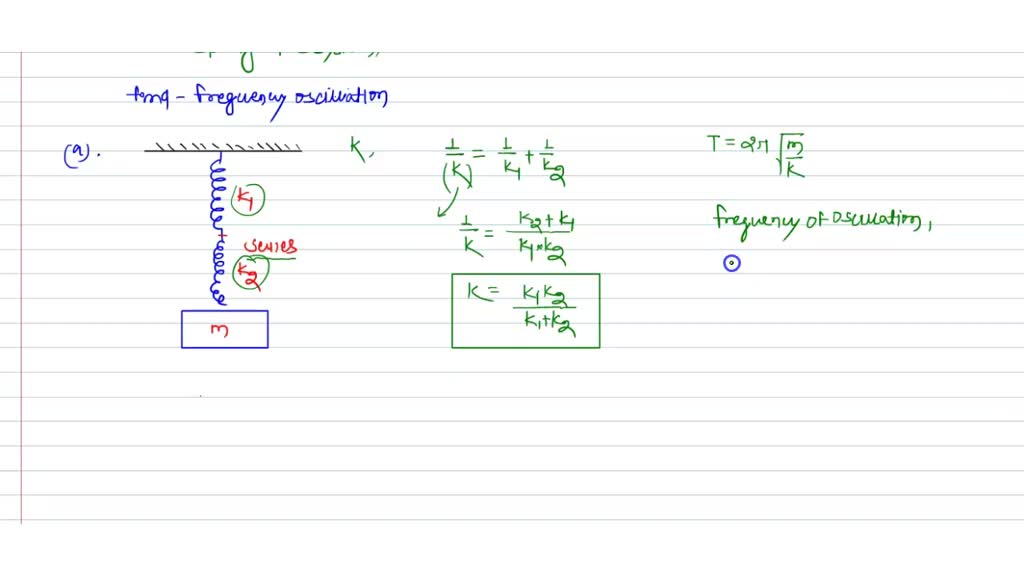 tmq - frequency oscillation
(a).
K1
series
K2
m
K,
1/K = 1/K1 + 1/K2
1/K = K2 + K1 / K1 * K2
K = K1 K2 / K1 + K2
T = 2π √m/K
frequency of oscillation,